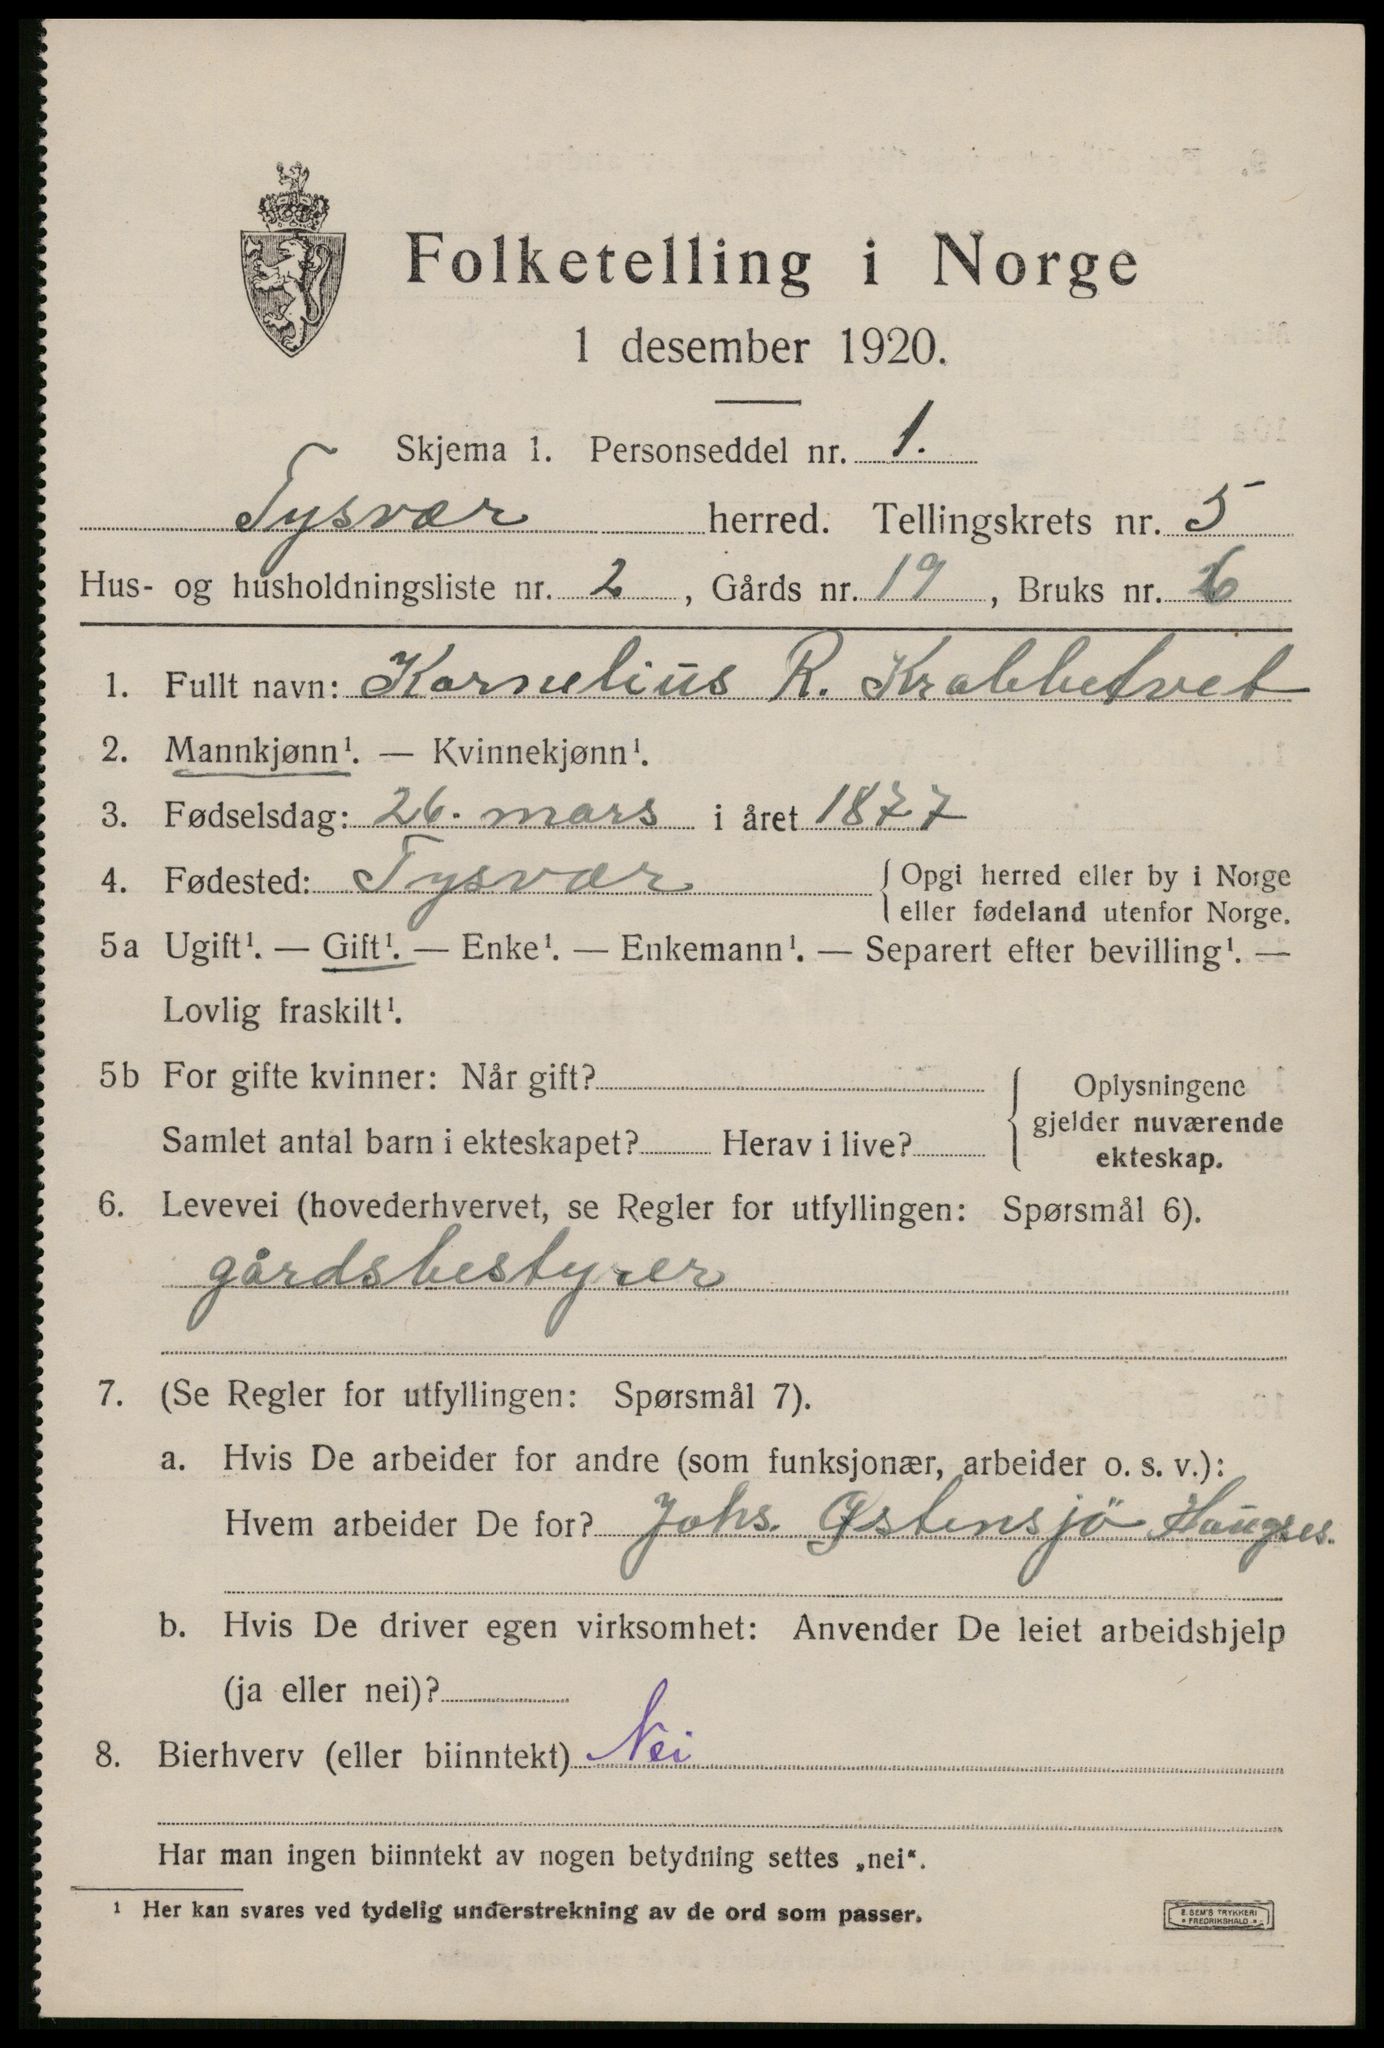 Folketelling i Norge
1 desember 1920.
Skjema 1. Personseddel nr. 1.
Tysvær herred. Tellingskrets nr. 5
Hus- og husholdningsliste nr. 2, Gårds nr. 19, Bruks nr. 6
1. Fullt navn: Kornelius R. Krabbetvet
2. Mannkjønn¹. — Kvinnekjønn¹.
3. Fødselsdag: 26. mars i året 1877
4. Fødested: Tysvær { Opgi herred eller by i Norge
eller fødeland utenfor Norge.
5a Ugift¹. — Gift¹. — Enke¹. — Enkemann¹. — Separert efter bevilling¹. —
Lovlig fraskilt¹.
5b For gifte kvinner: Når gift?
Samlet antal barn i ekteskapet? Herav i live?
{ Oplysningene
gjelder nuværende
ekteskap.
6. Levevei (hovederhvervet, se Regler for utfyllingen: Spørsmål 6).
gårdsbestyrer
7. (Se Regler for utfyllingen: Spørsmål 7).
a. Hvis De arbeider for andre (som funksjonær, arbeider o. s. v.):
Hvem arbeider De for? Johs. Østensjö Haugses.
b. Hvis De driver egen virksomhet: Anvender De leiet arbeidshjelp
(ja eller nei)?
8. Bierhverv (eller biinntekt) Nei
Har man ingen biinntekt av nogen betydning settes „nei“.
¹ Her kan svares ved tydelig understrekning av de ord som passer.
E. SEM'S TRYKKERI
FREDRIKSHALD